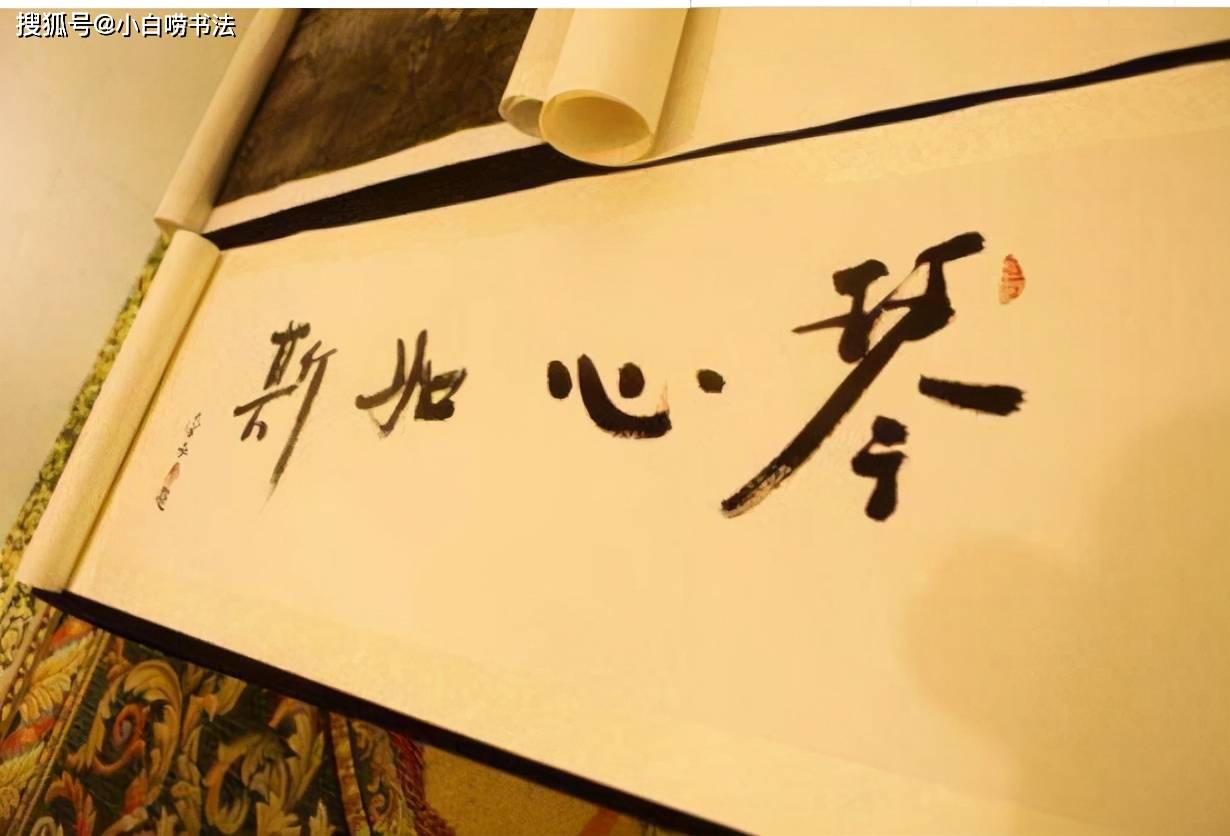 搜狐号@小白唠书法
琴心如斯